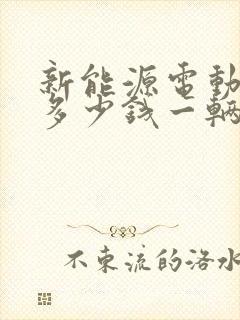 新能源電動
多少錢一輛
不東流的洛水